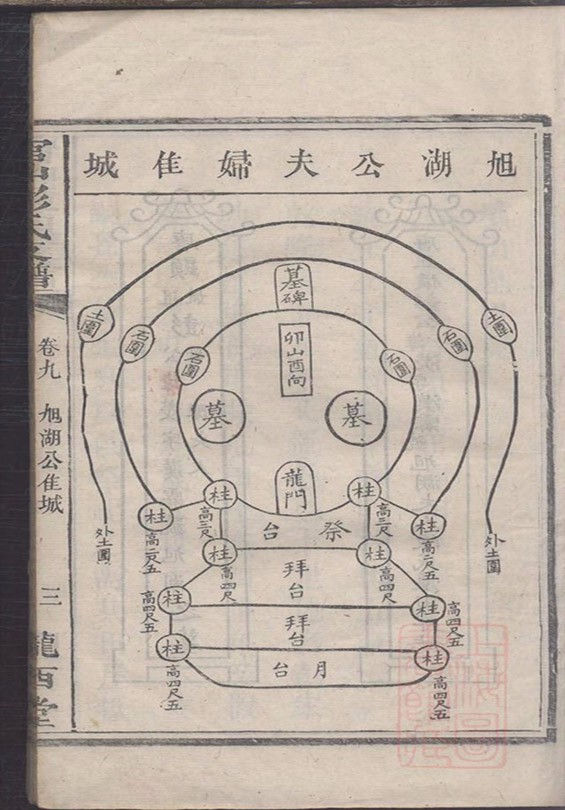 旭湖公夫婦佳城
墓碑
卯山酉向
土圍
土圍
石圍
石圍
石圍
石圍
墓
墓
龍門
柱
柱
高三尺
高三尺
柱
柱
高二尺五
高二尺五
祭台
外土圍
外土圍
柱
柱
高四尺
高四尺
拜台
柱
柱
高四尺五
高四尺五
拜台
柱
柱
高四尺五
高四尺五
月台
彭氏支譜
卷九
旭湖公佳城
三
隴西堂